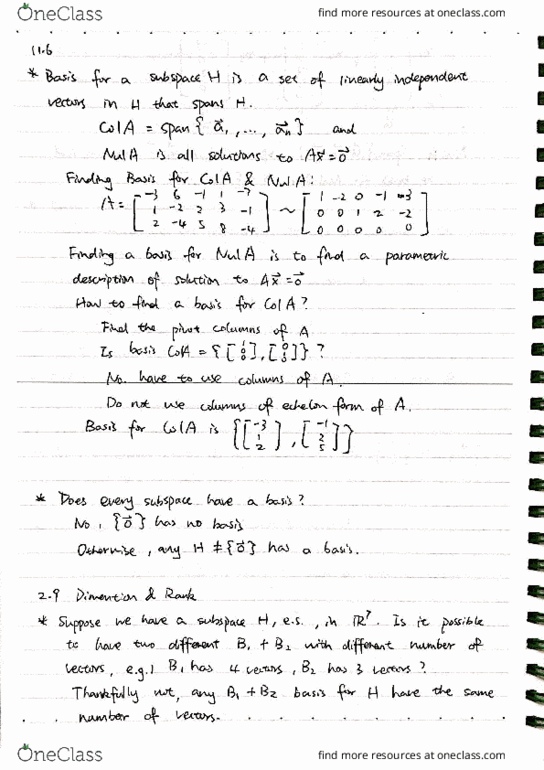 OneClass find more resources at oneclass.com
11.6
* Basis for a subspace H is a set of linearly independent
vectors in H that spans H.
Col A = span { a⃗₁, ..., a⃗ₙ } and
Nul A is all solutions to Ax⃗ = 0⃗
Finding Basis for Col A & Nul A:
A = [ -3 6 -1 1 -7 ] ~ [ 1 -2 0 -1 -3 ]
[ 1 -2 2 3 -1 ] [ 0 0 1 2 -2 ]
[ 2 -4 5 8 -4 ] [ 0 0 0 0 0 ]
Finding a basis for Nul A is to find a parametric
description of solution to Ax⃗ = 0⃗
How to find a basis for Col A?
Find the pivot columns of A
Is basis Col A = { [ 1 0 0 ], [ 0 1 0 ] } ?
No. have to use columns of A.
Do not use columns of echelon form of A.
Basis for Col A is { [ -3 1 2 ], [ -1 2 5 ] }
* Does every subspace have a basis?
No, {0⃗} has no basis
Otherwise, any H ≠ {0⃗} has a basis.
2.9 Dimention & Rank
* Suppose we have a subspace H, e.s., in ℝ⁷. Is it possible
to have two different B₁ + B₂ with different number of
vectors, e.g.) B₁ has 4 vectors, B₂ has 3 vectors?
Thankfully not, any B₁ + B₂ basis for H have the same
number of vectors.
OneClass find more resources at oneclass.com